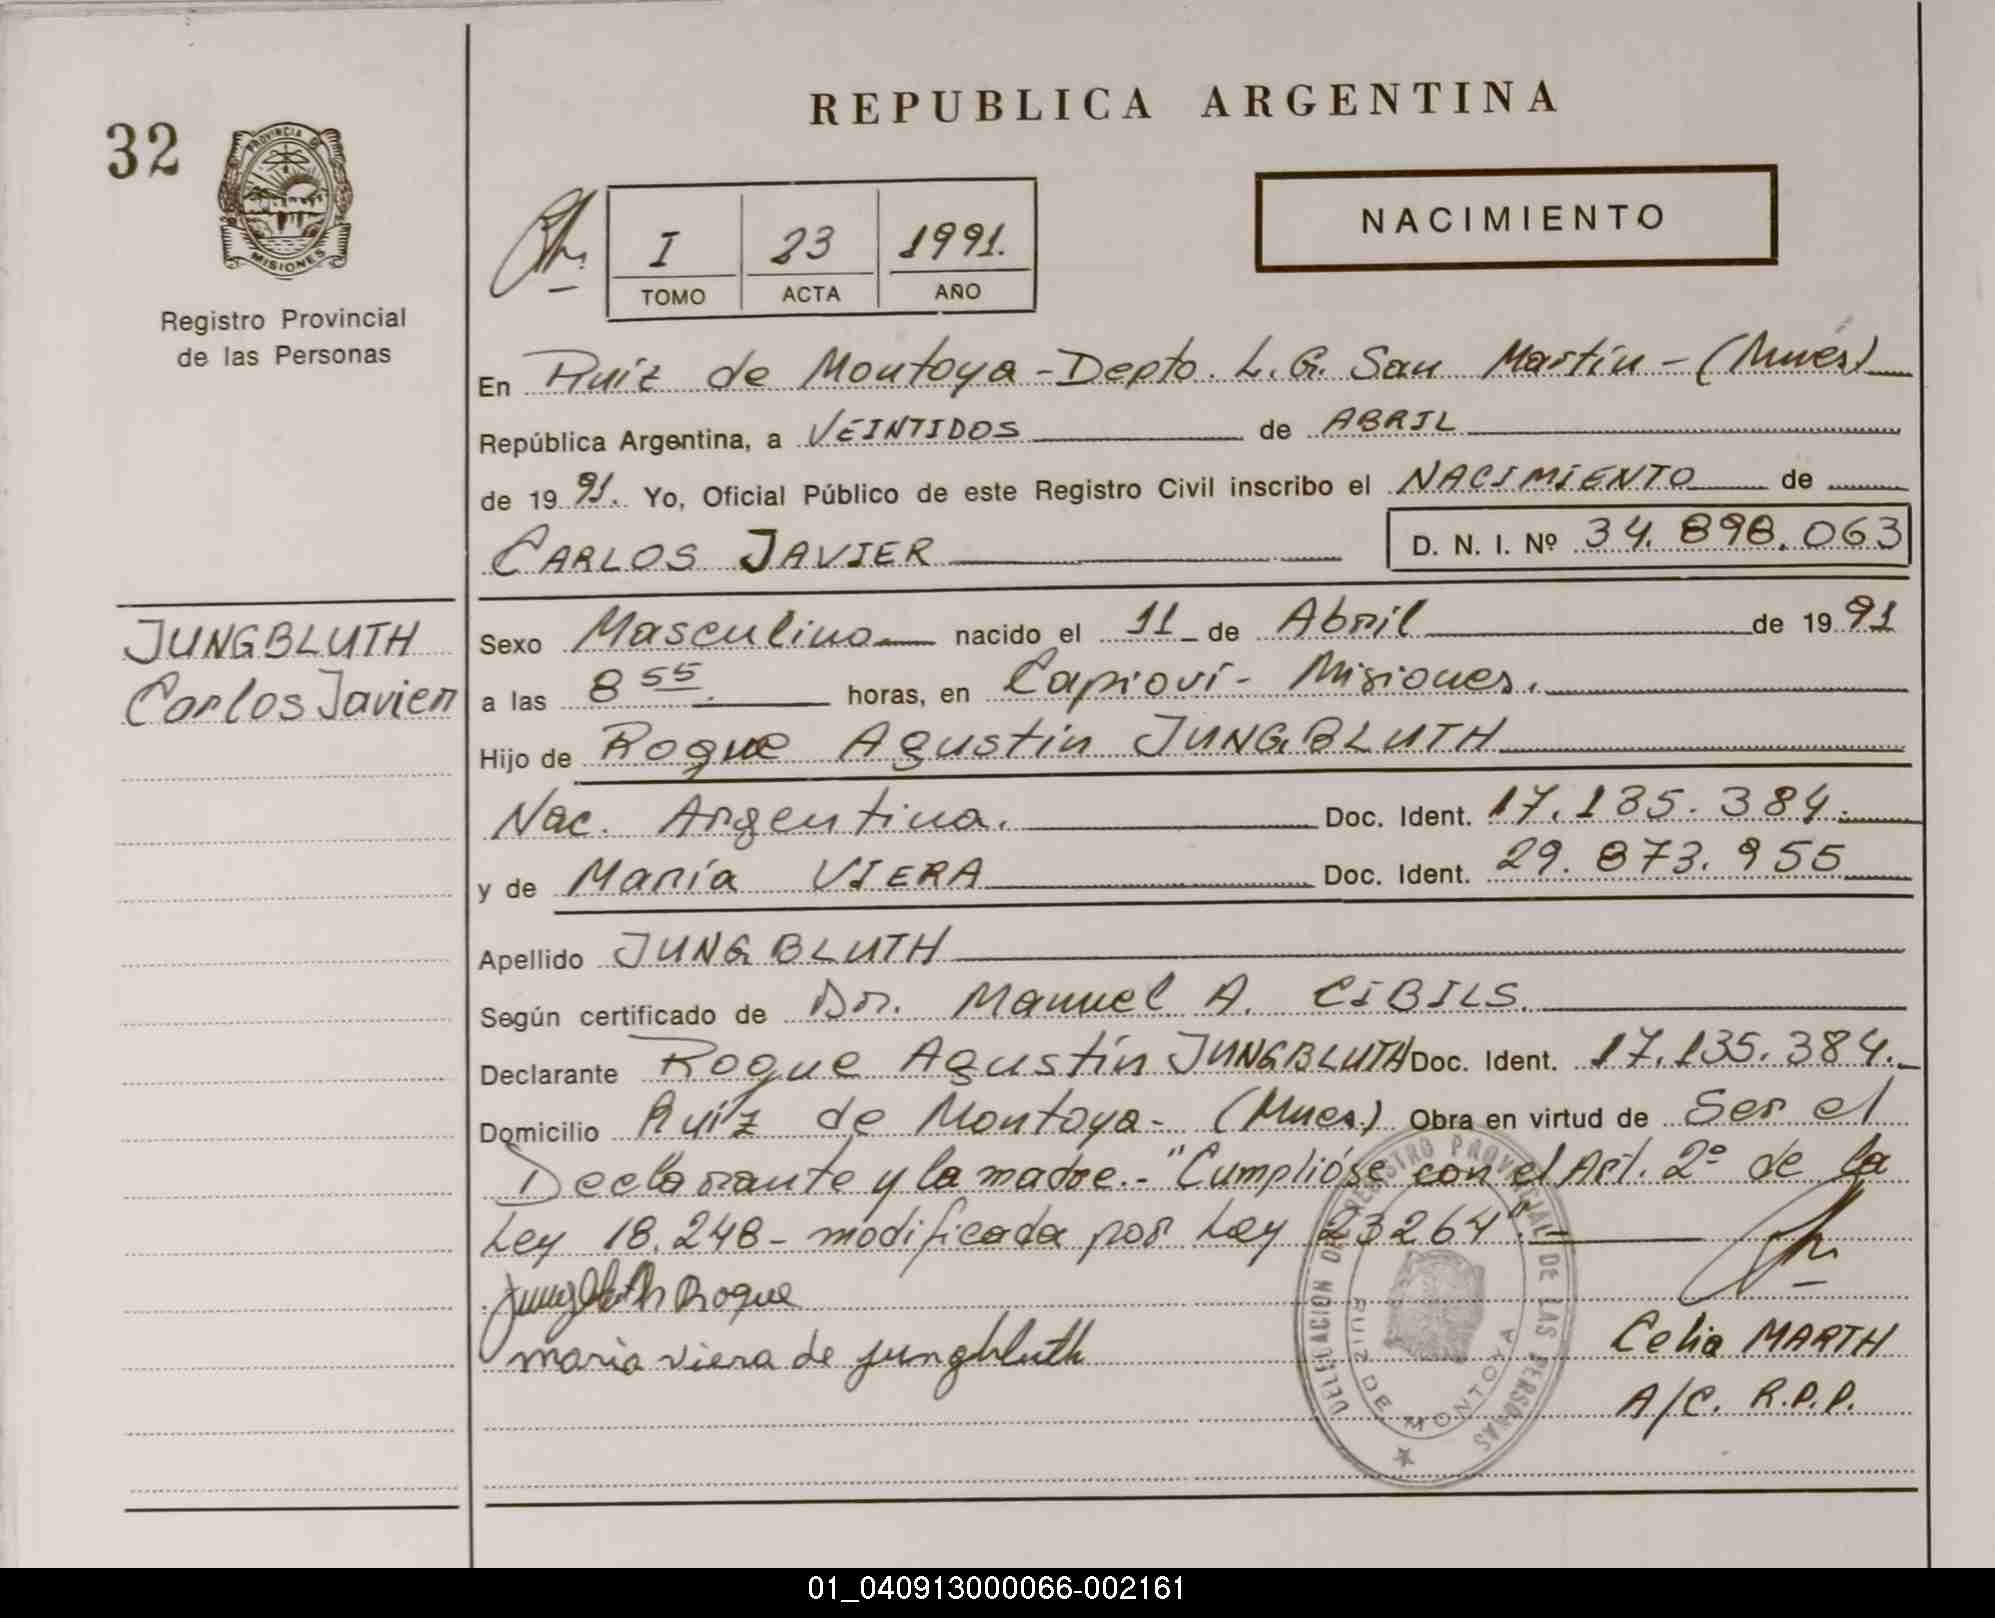 REPUBLICA ARGENTINA
32
PROVINCIA DE
MISIONES
Registro Provincial
de las Personas
I 23 1991.
TOMO ACTA AÑO
NACIMIENTO
En Ruíz de Montoya - Depto. L. G. San Martín - (Mnes)
República Argentina, a VEINTIDOS de ABRIL
de 19 91. Yo, Oficial Público de este Registro Civil inscribo el NACIMIENTO de
CARLOS JAVIER D. N. I. Nº 34.898.063
JUNGBLUTH
Carlos Javier
Sexo Masculino nacido el 11 de Abril de 19 91
a las 8 55. horas, en Capioví - Misiones.
Hijo de Roque Agustín JUNGBLUTH
Nac. Argentina. Doc. Ident. 17.135.384.
y de María VIERA Doc. Ident. 29.873.955
Apellido JUNGBLUTH
Según certificado de Dr. Manuel A. CIBILS.
Declarante Roque Agustín JUNGBLUTH Doc. Ident. 17.135.384.
Domicilio Ruíz de Montoya - (Mnes.) Obra en virtud de Ser el
Declarante y la madre.- "Cumplióse con el Art. 2º de la
Ley 18.248 - modificada por Ley 23264".-
Jungbluth Roque
maria viera de jungbluth
Celia MARTH
A/C. R.P.P.
DELEGACION DEL REGISTRO PROVINCIAL DE LAS PERSONAS
RUIZ DE MONTOYA
01_040913000066-002161